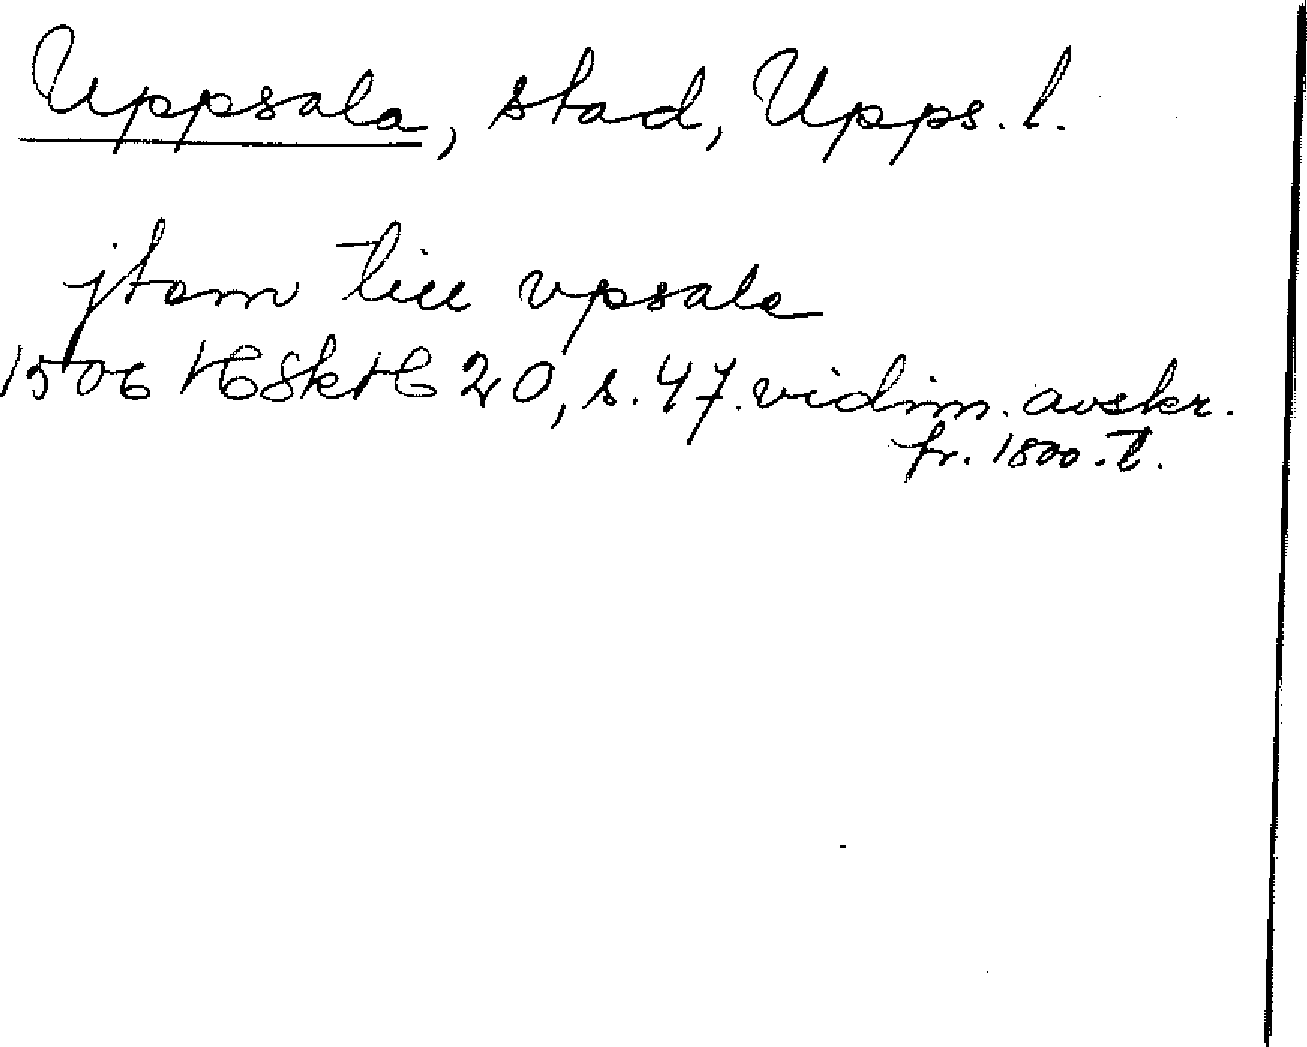 Uppsala, stad, Upps. l.
jtem till vpsala
1506 HSkH 20, s. 47. vidim. avskr.
fr. 1800-t.